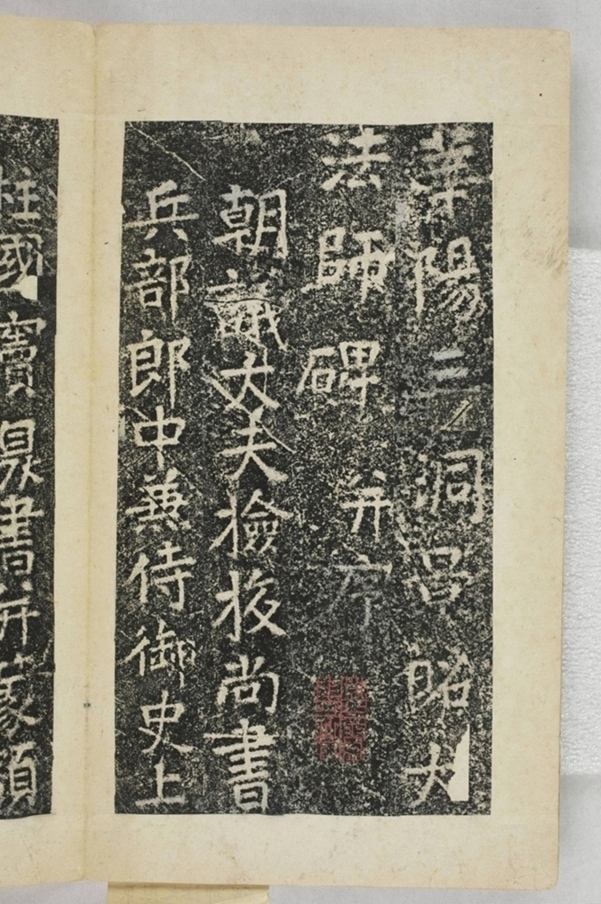 華陽三洞景昭大
法師碑 并序
朝議大夫檢挍尚書
兵部郎中兼侍御史上
柱國竇臮書并篆額